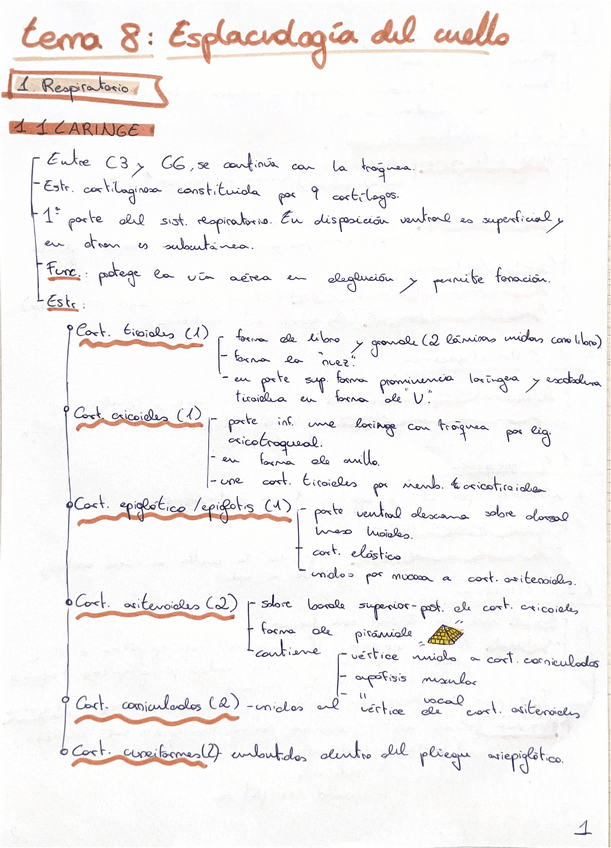 tema 8: Esplacnología del cuello
1. Respiratorio
1.1 LARINGE
- Entre C3 y C6, se continúa con la tráquea.
- Estr. cartilaginosa constituida por 9 cartílagos.
- 1ª parte del sist. respiratorio. En disposición ventral es superficial y
en otras es subcutánea.
- Func.: protege la vía aérea en deglución y permite fonación.
- Estr.:
Cart. tiroides (1)
- forma de libro y grande (2 láminas unidas como libro)
- forma la "nuez".
- en parte sup. forma prominencia laríngea y escotadura
tiroidea en forma de "V".
Cart. cricoides (1)
- parte inf. une laringe con tráquea por lig.
cricotraqueal.
- en forma de anillo.
- une cart. tiroides por memb. cricotiroidea
Cart. epiglótico/epiglotis (1)
- parte ventral descansa sobre dorsal
hueso hioides.
- cart. elástico
- unidos por mucosa a cart. aritenoides.
Cart. aritenoides (2)
- sobre borde superior-post. de cart. cricoides
- forma de pirámide
- contiene
- vértice unido a cart. corniculados
- apófisis muscular
- " vocal
Cart. corniculados (2) - unidos al vértice de cart. aritenoides
Cart. cuneiformes (2) embutidos dentro del pliegue ariepiglótico.
1